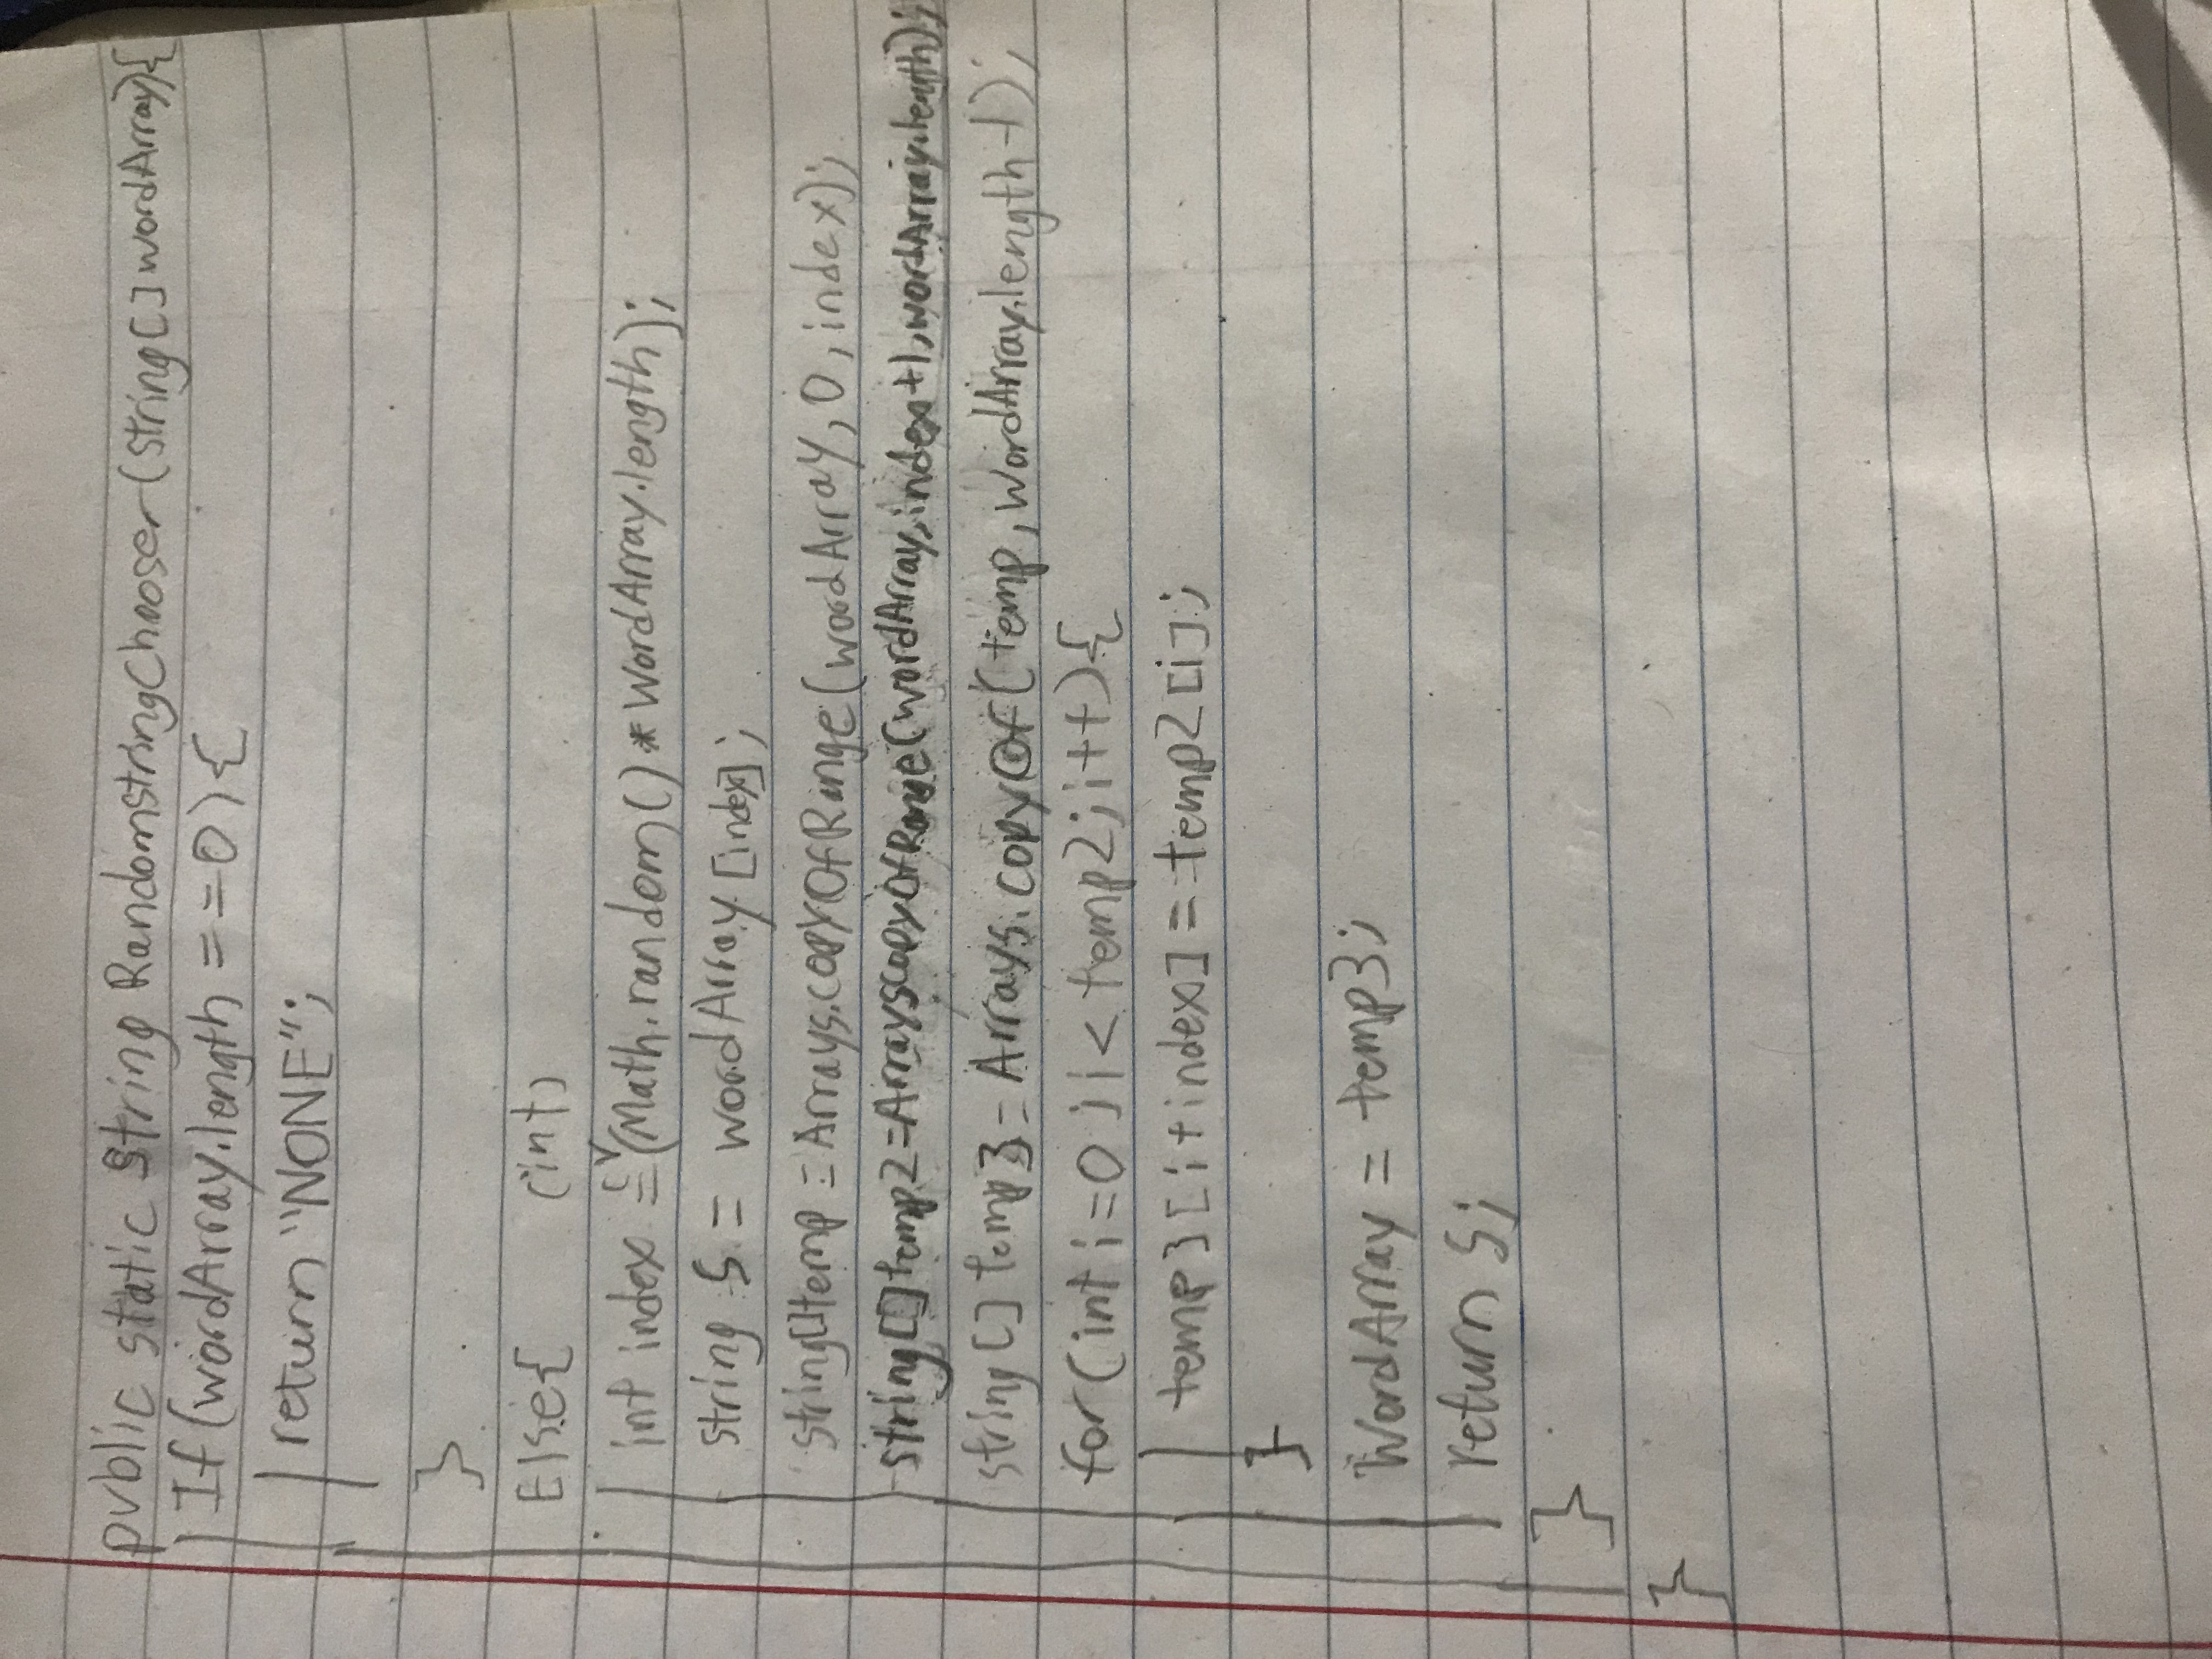 public static String RandomstringChooser(string[] wordArray){
If(wordArray.length ==0){
return "NONE";
}
Else{ (int)
int index = (Math.random()*WordArray.length);
string s = wordArray[index];
string[]temp = Arrays.copyOfRange(wordArray, 0, index);
string[]temp2=ArrayscopyOfRange(wordArray,index+1,wordArray.length);
string[] temp3= Arrays.copyOf(temp, WordArray.length-1);
for(int i=0 ; i< temp2; i++){
temp3[i+index] = temp2[i];
}
WordArray = temp3;
return s;
}
}